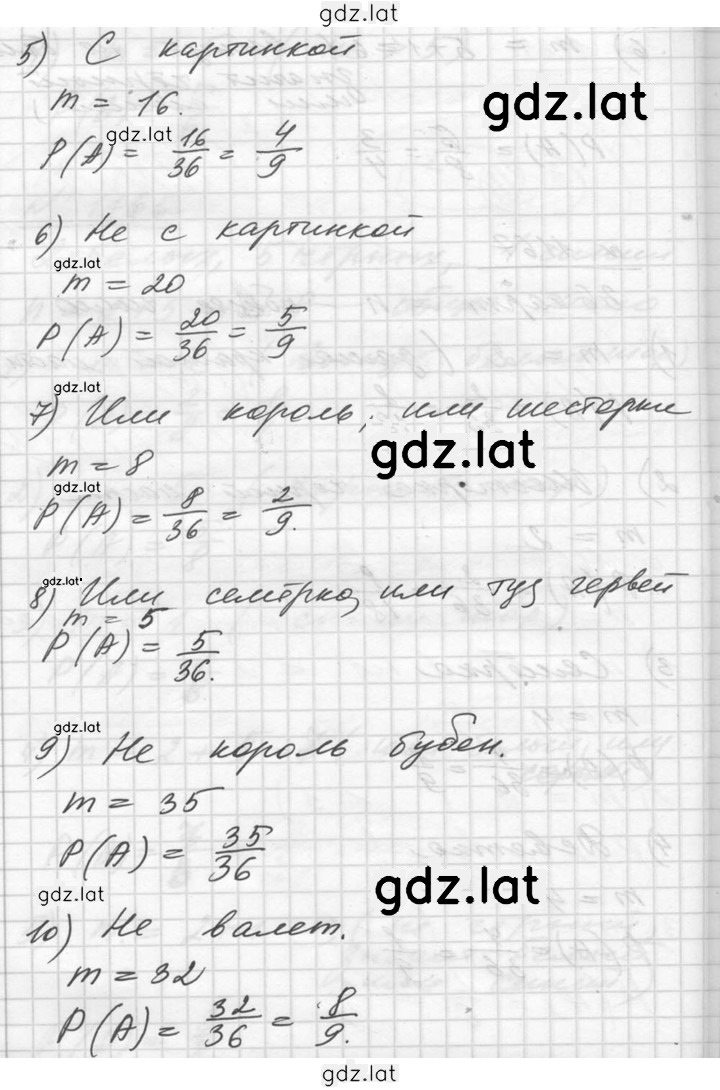 gdz.lat
5) С картинкой
m = 16.
gdz.lat
gdz.lat
P(A) = 16/36 = 4/9
6) Не с картинкой
gdz.lat
m = 20
P(A) = 20/36 = 5/9
gdz.lat
7) Или король, или шестерка
gdz.lat
m = 8
gdz.lat
P(A) = 8/36 = 2/9.
gdz.lat
8) Или семёрка, или туз червей
m = 5
P(A) = 5/36.
gdz.lat
9) Не король бубен.
m = 35
P(A) = 35/36
gdz.lat
gdz.lat
10) Не валет.
m = 32
P(A) = 32/36 = 8/9.
gdz.lat